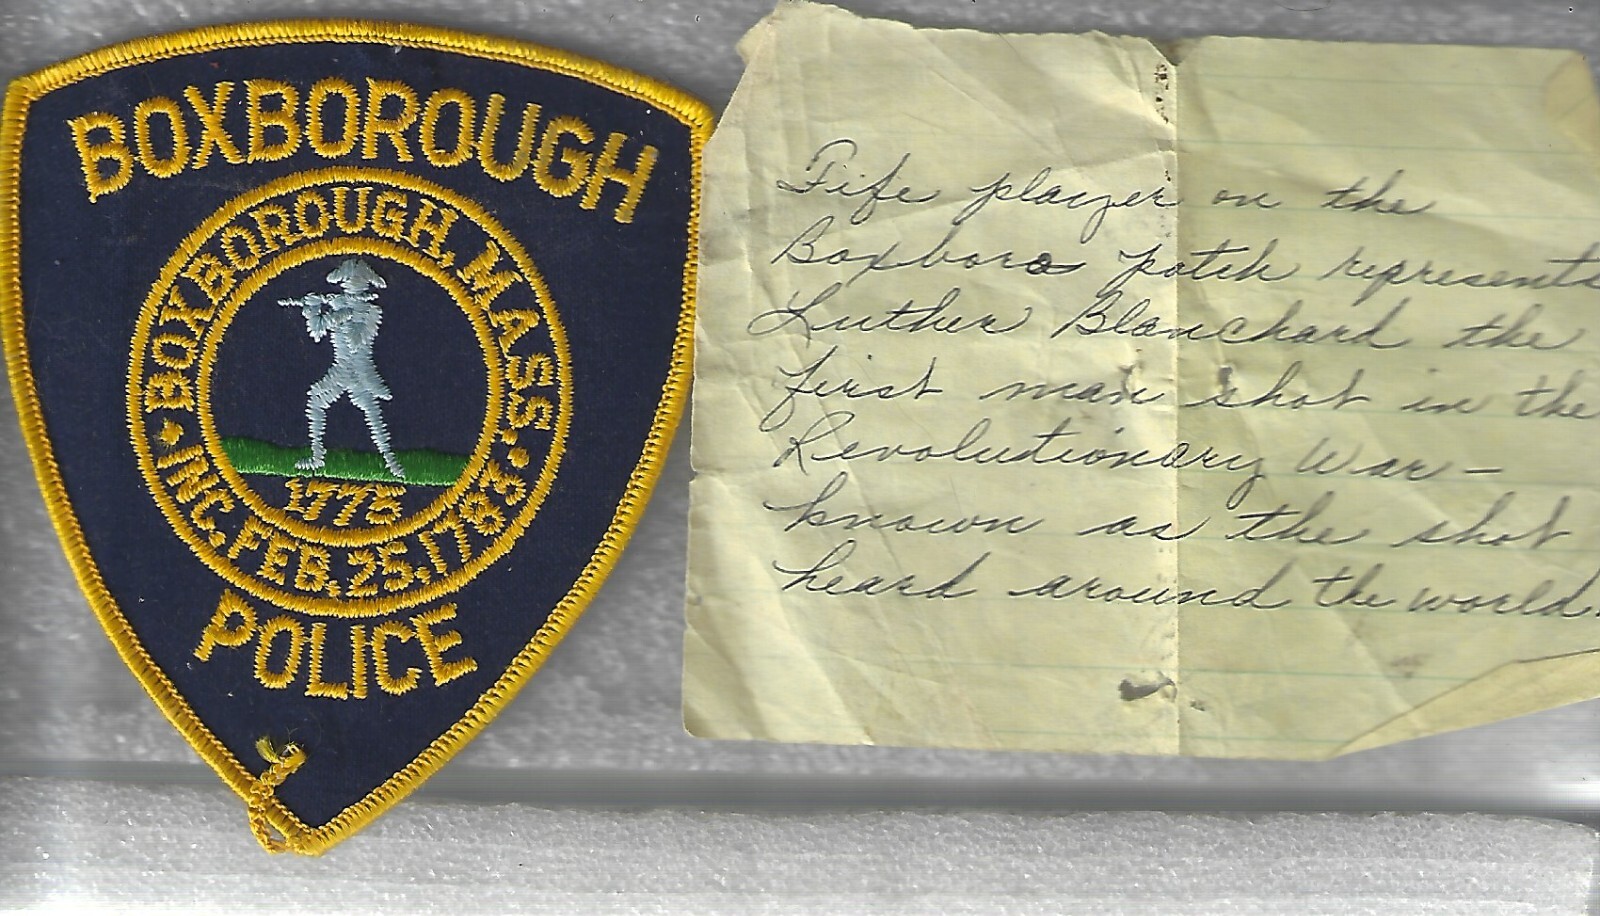 BOXBOROUGH
BOXBOROUGH, MASS.
1775
INC. FEB. 25, 1783
POLICE
Fife player on the
Boxboro patch represents
Luther Blanchard the
first man shot in the
Revolutionary War —
known as the shot
heard around the world.